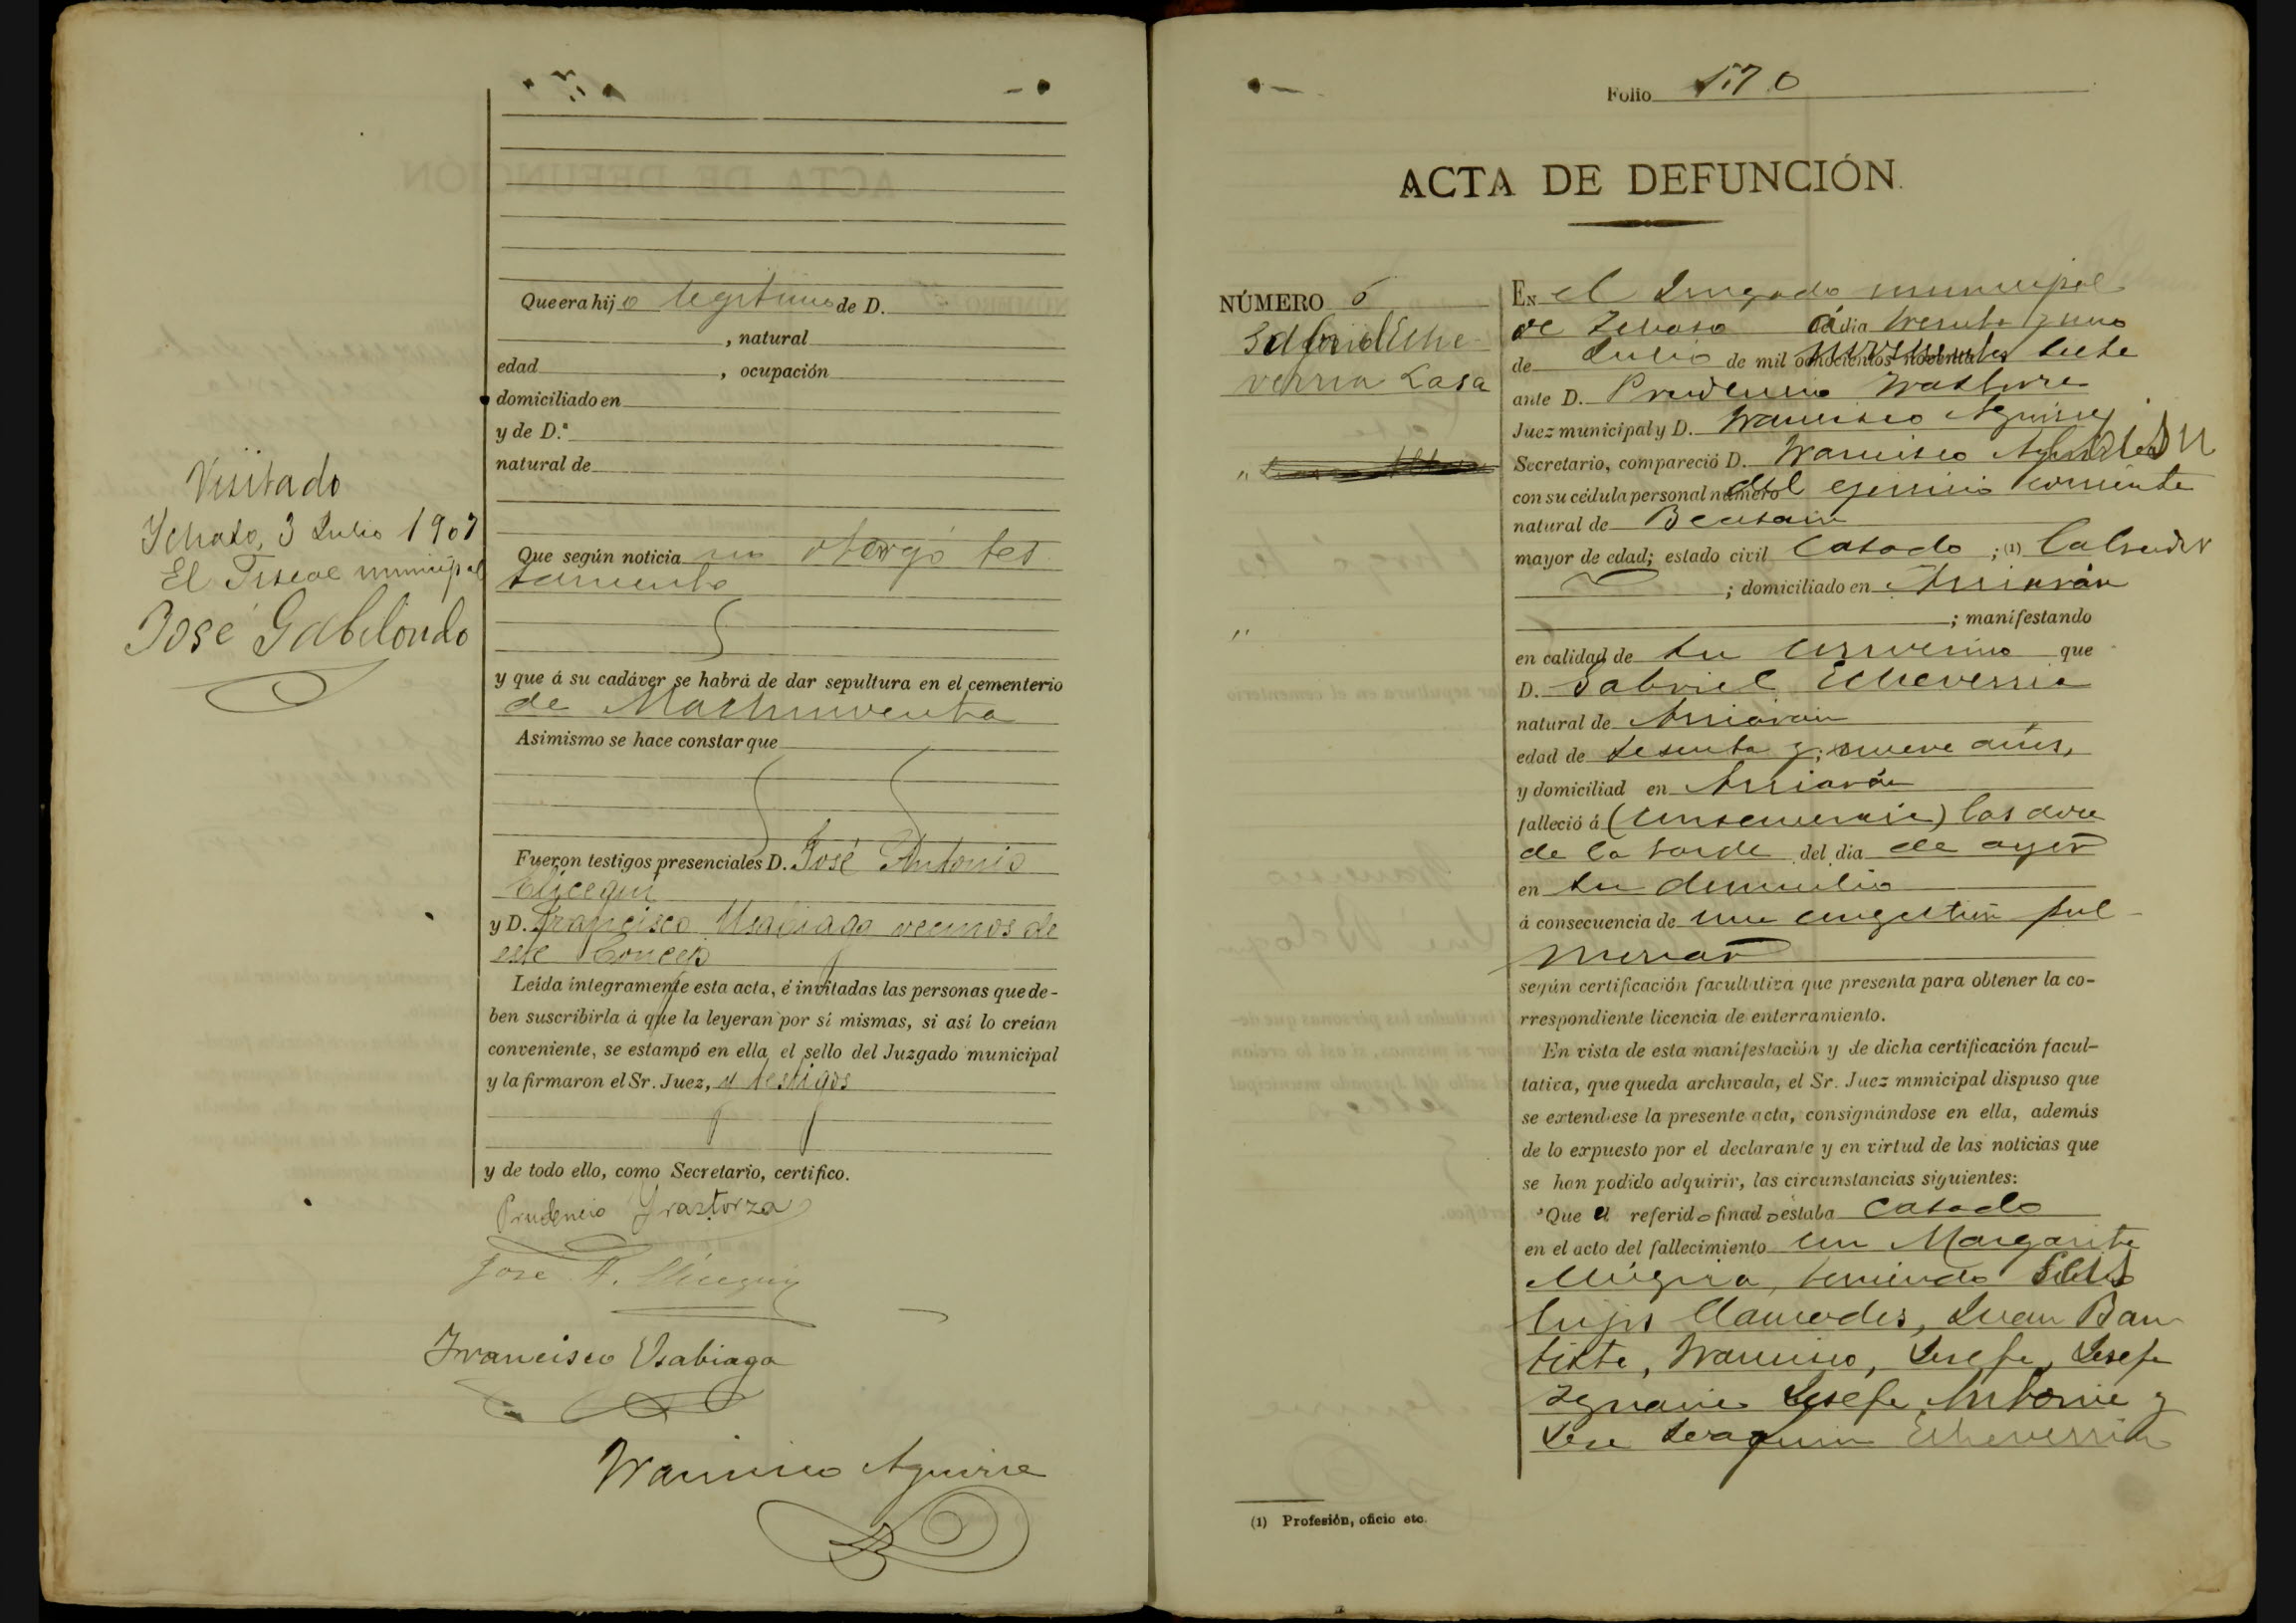 Que era hijo legitimo de D.
, natural
edad , ocupación
domiciliado en
y de D.ª
natural de
Visitado
3 Julio 1907
El Fiscal municipal
José Gabilondo
Que según noticia no otorgó tes
tamento
y que á su cadáver se habrá de dar sepultura en el cementerio
de Machinventa
Asimismo se hace constar que
Fueron testigos presenciales D. José Antonio
Elicegui
y D. Francisco Usabiaga vecinos de
este Concejo
Leída íntegramente esta acta, é invitadas las personas que de-
ben suscribirla á que la leyeran por sí mismas, si así lo creían
conveniente, se estampó en ella el sello del Juzgado municipal
y la firmaron el Sr. Juez, y testigos
y de todo ello, como Secretario, certifico.
Prudencio Yrastorza
José A. Elicegui
Francisco Usabiaga
Francisco Aguirre
Folio 170
ACTA DE DEFUNCIÓN.
NÚMERO 6
Gabriel Eche
verria Lasa
En el Juzgado municipal
de á dia treinta y uno
de Julio de mil novecientos siete
ante D. Prudencio Irastorza
Juez municipal y D. Francisco Aguirre
Secretario, compareció D. Francisco
con su cédula personal número del ejercicio corriente
natural de Beasain
mayor de edad; estado civil Casado ; (1) Labrador
; domiciliado en Arriarán
; manifestando
en calidad de su convecino que
D. Gabriel Echeverria
natural de Arriarán
edad de sesenta y nueve años,
y domiciliad en Arriarán
falleció á las doce
de la tarde del dia de ayer
en su domicilio
á consecuencia de una congestion pul
monar
según certificación facultativa que presenta para obtener la co-
rrespondiente licencia de enterramiento.
En vista de esta manifestación y de dicha certificación facul-
tativa, que queda archivada, el Sr. Juez municipal dispuso que
se extendiese la presente acta, consignándose en ella, además
de lo expuesto por el declarante y en virtud de las noticias que
se han podido adquirir, las circunstancias siguientes:
Que el referido finado estaba Casado
en el acto del fallecimiento con Margarita
Múgica, teniendo seis
hijos llamados, Juan Bau
tista, Francisco, Josefa, Josefa
Ignacia Josefa Antonia y
José Joaquin Echeverria
(1) Profesión, oficio etc.